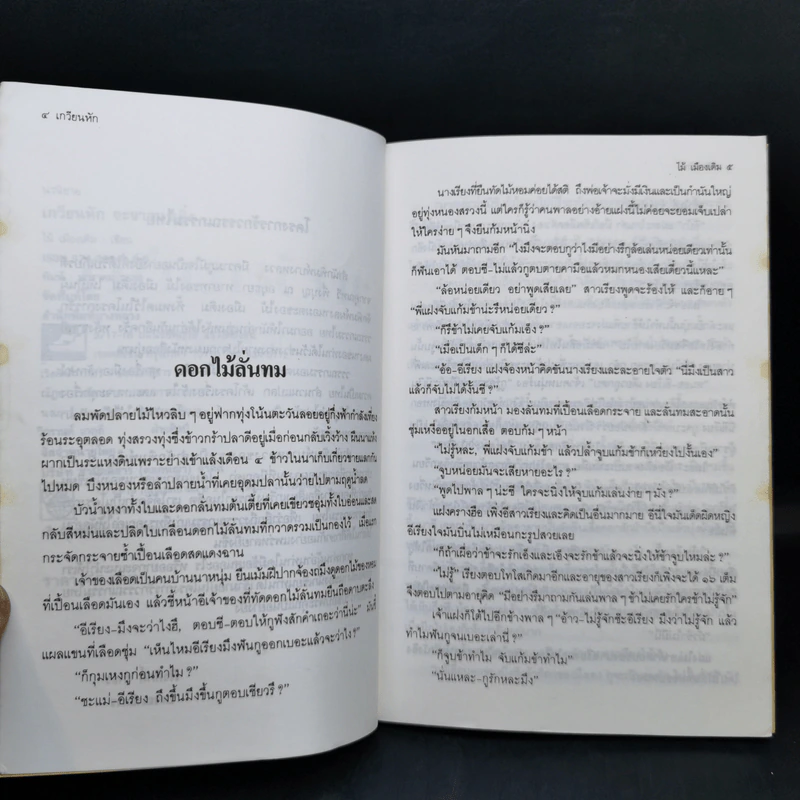 ๔ เกวียนหัก
ดอกไม้ลั่นทม
ลมพัดปลายไม้ไหวลิบ ๆ อยู่ฟากทุ่งโน้นตะวันลอยอยู่กึ่งฟ้ากำลังเที่ยง
ร้อนระอุตลอด ทุ่งสรวงทุ่งซึ่งข้าวกร้าปลาดีอยู่เมื่อก่อนกลับเวิ้งว้าง ผืนนาแห้ง
ผากเป็นระแหงดินเพราะย่างเข้าแล้งเดือน ๔ ข้าวในนาเก็บเกี่ยวขายแลกกัน
ไปหมด บึงหนองหรือลำปลายน้ำที่เคยอุดมปลานั้นว่ายไปตามฤดูน้ำลด
บัวน้ำเหงาทั้งใบและดอกลั่นทมต้นเตี้ยที่เคยเขียวชอุ่มทั้งใบอ่อนและสด
กลับสีหม่นและปลิดใบเกลื่อนดอกไม้ลั่นทมที่กวาดรวมเป็นกองไว้ เมื่อแตก
กระจัดกระจายซ้ำเปื้อนเลือดสดแดงฉาน
เจ้าของเลือดเป็นคนบ้านนาหนุ่ม ยืนเม้มฝีปากจ้องถมึงดูดอกไม้ของหอม
ที่เปื้อนเลือดมันเอง แล้วชี้หน้าอีเจ้าของที่ทัดดอกไม้ลั่นทมยืนถือดาบตะลึง
“อีเรียง-มึงจะว่าไงฮึ, ตอบซี-ตอบให้กูฟังสักคำเถอะว่านี่น่ะ” มันชี้
แผลแขนที่เลือดชุ่ม “เห็นไหมอีเรียงมึงฟันกูออกเบอะแล้วจะว่าไง ?”
“ก็กุมเหงกูก่อนทำไม ?”
“ชะแม่-อีเรียง ถึงขึ้นมึงขึ้นกูตอบเชียวรึ ?”
ไม้ เมืองเดิม ๕
นางเรียงที่ยืนทัดไม้หอมค่อยได้สติ ถึงพ่อเจ้าจะมั่งมีเงินและเป็นกำนันใหญ่
อยู่ทุ่งหนองสรวงนี้ แต่ใครก็รู้ว่าคนพาลอย่างอ้ายแฝงนี้ไม่ค่อยจะยอมเจ็บเปล่า
ให้ใครง่าย ๆ จึงยืนก้มหน้านิ่ง
มันหันมาถามอีก “ไงมึงจะตอบกูว่าไงมีอย่างรึกูล้อเล่นหน่อยเดียวเท่านั้น
ก็ฟันเอาได้ ตอบซี-ไม่แล้วกูตบตายคามือแล้วหมกหนองเสียเดี๋ยวนี้แหละ”
“ล้อหน่อยเดียว อย่าพูดเสียเลย” สาวเรียงพูดจะร้องไห้ และก็อาย ๆ
“พี่แฝงจับแก้มข้าน่ะรึหน่อยเดียว ?”
“ก็รึข้าไม่เคยจับแก้มเอ็ง ?”
“เมื่อเป็นเด็ก ๆ ก็ได้ซีล่ะ”
“อ้อ-อีเรียง แฝงจ้องหน้าคิดขันนางเรียงและละอายใจตัว “นี่มึงเป็นสาว
แล้วก็จับไม่ได้งั้นซี ?”
สาวเรียงก้มหน้า มองลั่นทมที่เปื้อนเลือดกระจาย และลั่นทมสะอาดนั้น
ชุ่มเหงื่ออยู่ในอกเสื้อ ตอบก้ม ๆ หน้า
“ไม่รู้หละ, พี่แฝงจับแก้มข้า แล้วปล้ำจูบแก้มข้าก็เหวี่ยงไปงั้นเอง”
“จูบหน่อยมันจะเสียหายอะไร ?”
“พูดไปพาล ๆ น่ะซี ใครจะนิ่งให้จูบแก้มเล่นง่าย ๆ มั่ง ?”
แฝงครางฮือ เพิ่งอีสาวเรียงและคิดเป็นอื่นมากมาย อีนี่ใจมันเด็ดผิดหญิง
อีเรียงใจมันบิ่นไม่เหมือนกะรูปสวยเลย
“ก็ถ้าเผื่อว่าข้าจะรักเอ็งและเอ็งจะรักข้าแล้วจะนิ่งให้ข้าจูบไหมล่ะ ?”
“ไม่รู้” เรียงตอบโทโสเกิดมาอีกและอายุของสาวเรียงก็เพิ่งจะได้ ๑๖ เต็ม
จึงตอบไปตามอายุคิด “มีอย่างรึมาถามกันเล่นพาล ๆ ข้าไม่เคยรักใครข้าไม่รู้จัก”
เจ้าแฝงก็ได้ไปอีกข้างพาล ๆ “อ้าว-ไม่รู้จักซีะอีเรียง มึงว่าไม่รู้จัก แล้ว
ทำไมฟันกูจนเบอะเล่านี่ ?”
“ก็จูบข้าทำไม จับแก้มข้าทำไม”
“นั่นแหละ-กูรักหละมึง”